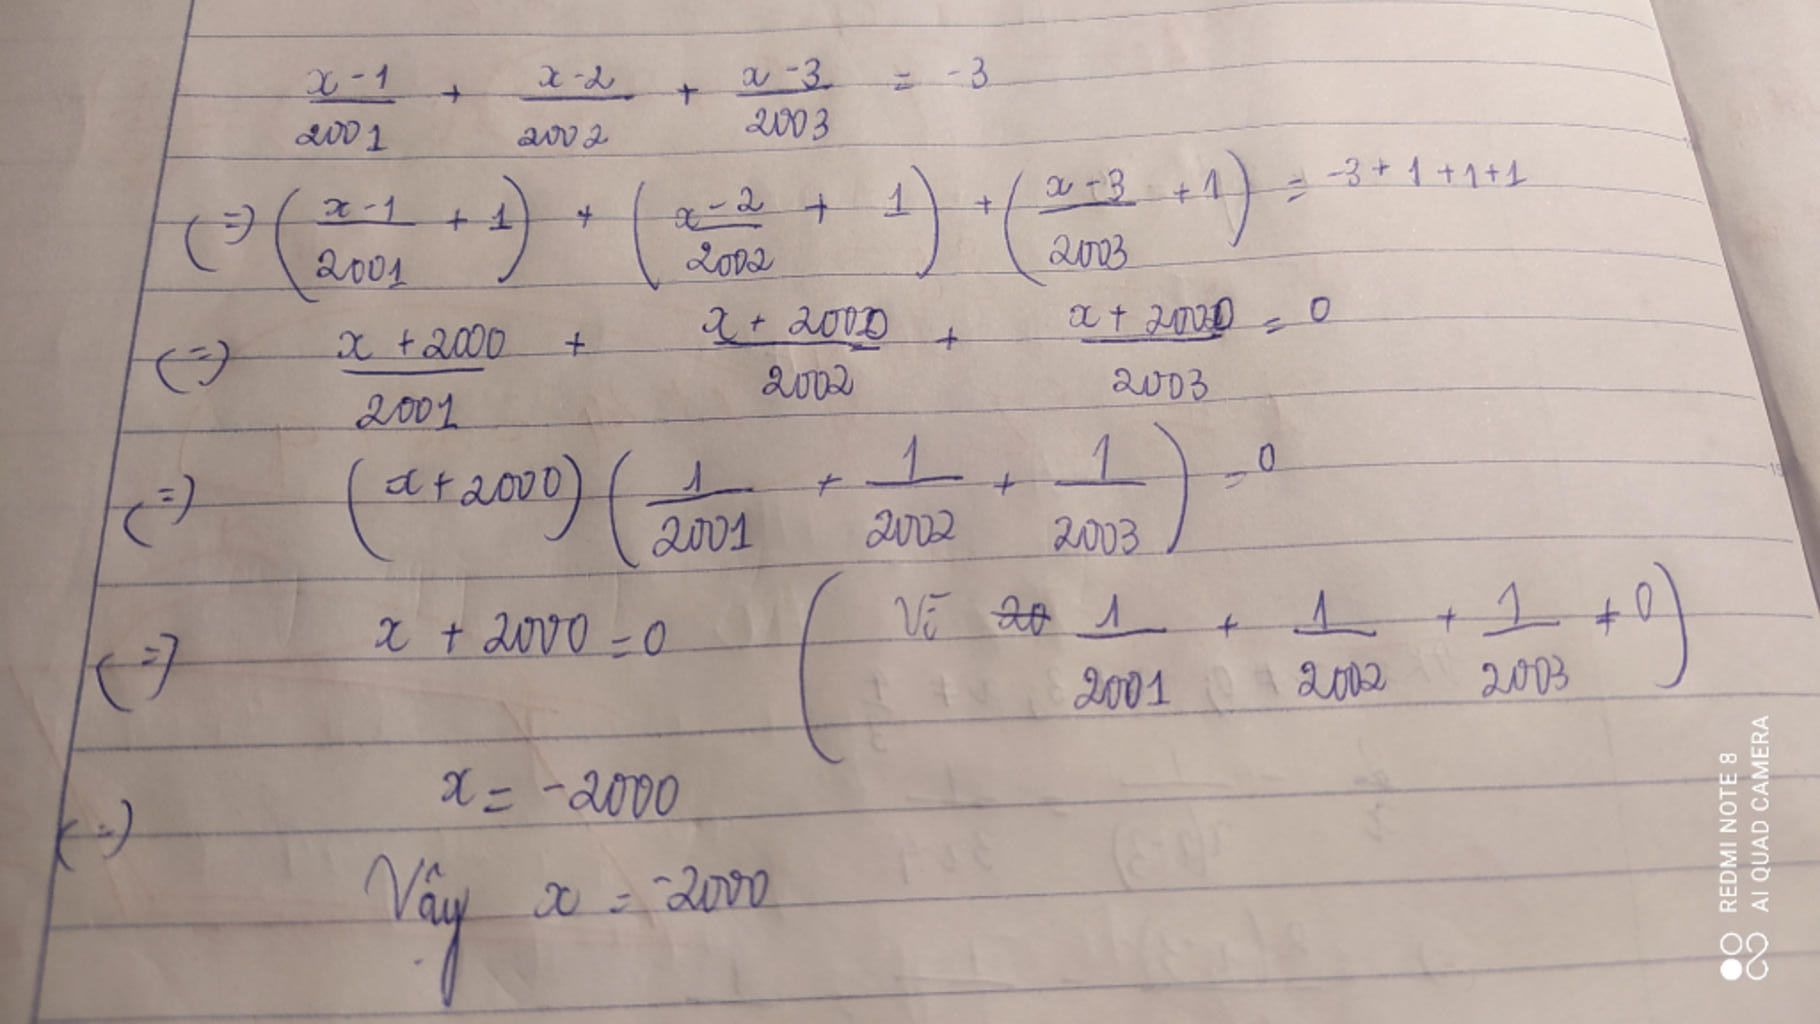 x-1/2001 + x-2/2002 + x-3/2003 = -3
(=) (x-1/2001 + 1) + (x-2/2002 + 1) + (x-3/2003 + 1) = -3 + 1 + 1 + 1
(=) x+2000/2001 + x+2000/2002 + x+2000/2003 = 0
(=) (x+2000) (1/2001 + 1/2002 + 1/2003) = 0
(=) x + 2000 = 0 (Vì 1/2001 + 1/2002 + 1/2003 ≠ 0)
(=) x = -2000
Vậy x = -2000
REDMI NOTE 8
AI QUAD CAMERA